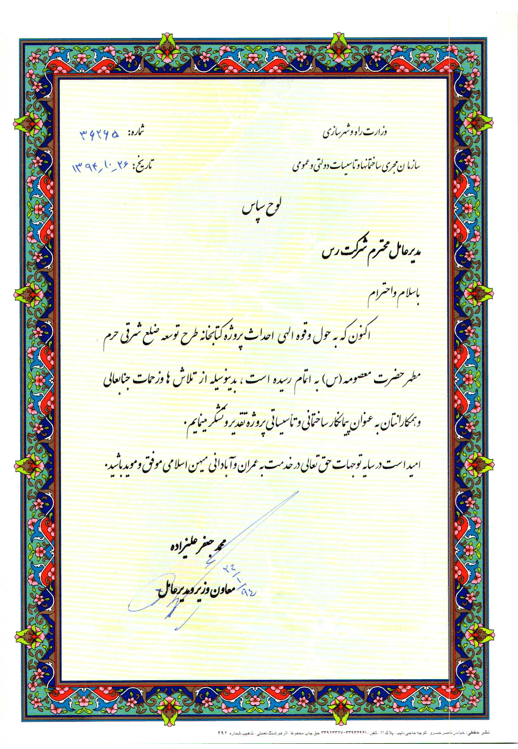 وزارت راه و شهرسازی
شماره: ۳۶۲۶۵
سازمان مجری ساختمانها و تاسیسات دولتی و عمومی
تاریخ: ۱۳۹۴٫۱۰٫۲۶
لوح سپاس
مدیرعامل محترم شرکت رس
باسلام و احترام
اکنون که به حول و قوه الهی احداث پروژه کتابخانه طرح توسعه ضلع شرقی حرم
مطهر حضرت معصومه (س) به اتمام رسیده است ، بدینوسیله از تلاش ها و زحمات جنابعالی
و همکارانتان به عنوان پیمانکار ساختمانی و تأسیساتی پروژه تقدیر و تشکر مینمایم.
امید است در سایه توجهات حق تعالی در خدمت به عمران و آبادانی میهن اسلامی موفق و موید باشید.
محمد جعفر علیزاده
معاون وزیر و مدیرعامل
نشر حنفی: خیابان ناصرخسرو، کوچه حاجی نایب، پلاک